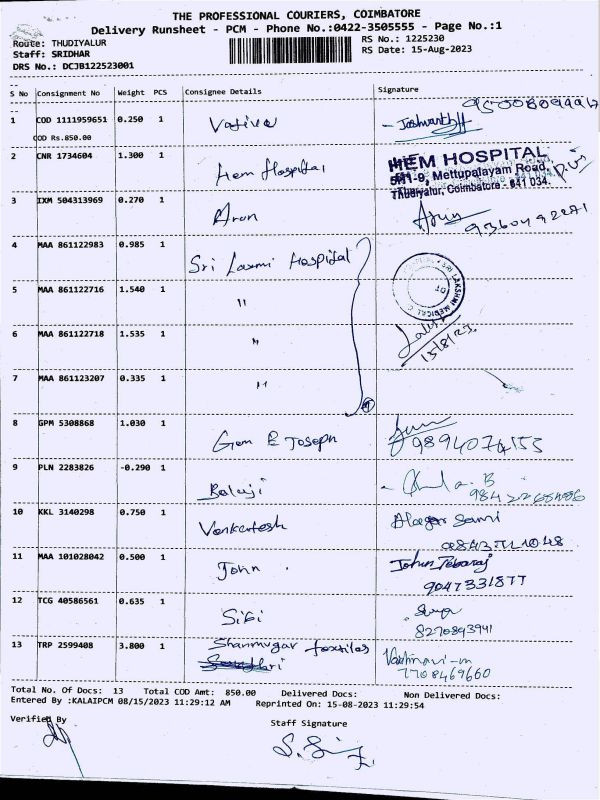 THE PROFESSIONAL COURIERS, COIMBATORE
Delivery Runsheet - PCM - Phone No.:0422-3505555 - Page No.:1
Route: THUDIYALUR RS No.: 1225230
Staff: SRIDHAR RS Date: 15-Aug-2023
DRS No.: DCJB122523001
S No Consignment No Weight PCS Consignee Details Signature
1 COD 1111959651 0.250 1
COD Rs.850.00
2 CNR 1734604 1.300 1 Hem Hospital HEM HOSPITAL
5/11-9, Mettupalayam Road,
Thudiyalur, Coimbatore - 641 034.
3 IXM 504313969 0.270 1 Arun Arun
9360492271
4 MAA 861122983 0.985 1 Sri Laxmi Hospital
5 MAA 861122716 1.540 1 "
6 MAA 861122718 1.535 1 "
15/8/23
7 MAA 861123207 0.335 1 "
8 GPM 5308868 1.030 1 Gem E Joseph
9894074153
9 PLN 2283826 -0.290 1 Balaji
10 KKL 3140298 0.750 1 Venkatesh
11 MAA 101028042 0.500 1 John
9047331877
12 TCG 40586561 0.635 1 Sibi Surya
8270893941
13 TRP 2599408 3.800 1 Shanmugar textiles
7708469660
Total No. Of Docs: 13 Total COD Amt: 850.00 Delivered Docs: Non Delivered Docs:
Entered By :KALAIPCM 08/15/2023 11:29:12 AM Reprinted On: 15-08-2023 11:29:54
Verified By Staff Signature